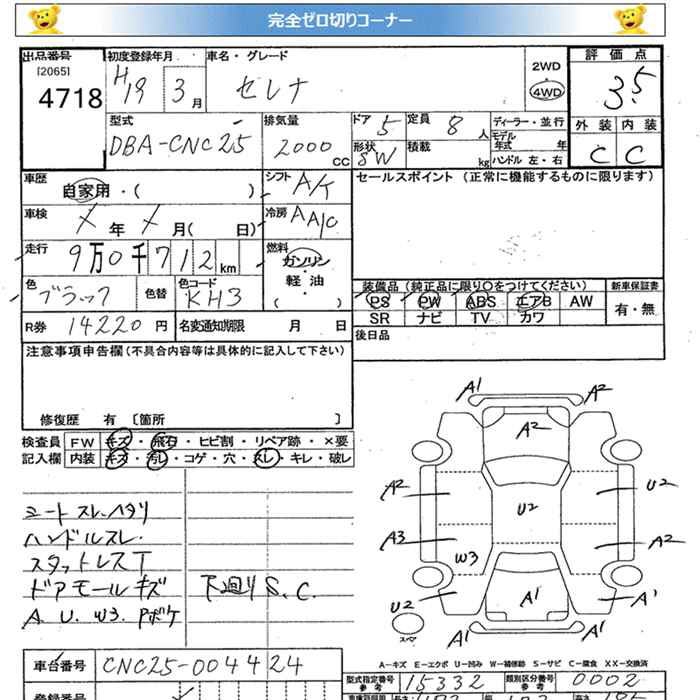 完全ゼロ切りコーナー
出品番号 初度登録年月 車名・グレード 評価点
[2065] 2WD
4718 H19 3月 セレナ 4WD 3.5
型式 排気量 ドア 5 定員 8人 ディーラー・並行 外装 内装
DBA-CNC25 2000cc 形状 SW 積載 kg モデル年式 年 C C
ハンドル 左・右
車歴 自家用・( ) シフト A/T セールスポイント (正常に機能するものに限ります)
車検 X年X月( 日) 冷房 AA/C
走行 9万0千712km 燃料 ガソリン・軽油・( )
色 ブラック 色替 色コード KH3 装備品 (純正品に限り○をつけてください) 新車保証書
PS PW ABS エアB AW 有・無
R券 14220円 名変通知期限 月 日 SR ナビ TV カワ
注意事項申告欄 (不具合内容等は具体的に記入して下さい) 後日品
修復歴 有 〔箇所 〕
検査員 FW キズ・飛石・ヒビ割・リペア跡・×要
記入欄 内装 キズ・汚レ・コゲ・穴・スレ・キレ・破レ
シートスレ、ヘタリ
ハンドルスレ.
スタットレスT
ドアモールキズ 下廻りS、C.
A. U. W3. Pボケ
A1 A2
A2
A2 U2
U2
A3 A2
W3
U2 A1 A1
A1 A1
スペア
A-キズ E-エクボ U-凹み W-補修跡 S-サビ C-腐食 XX-交換済
車台番号 CNC25-004424 型式指定番号 参考 15332 類別区分番号 参考 0002
登録番号